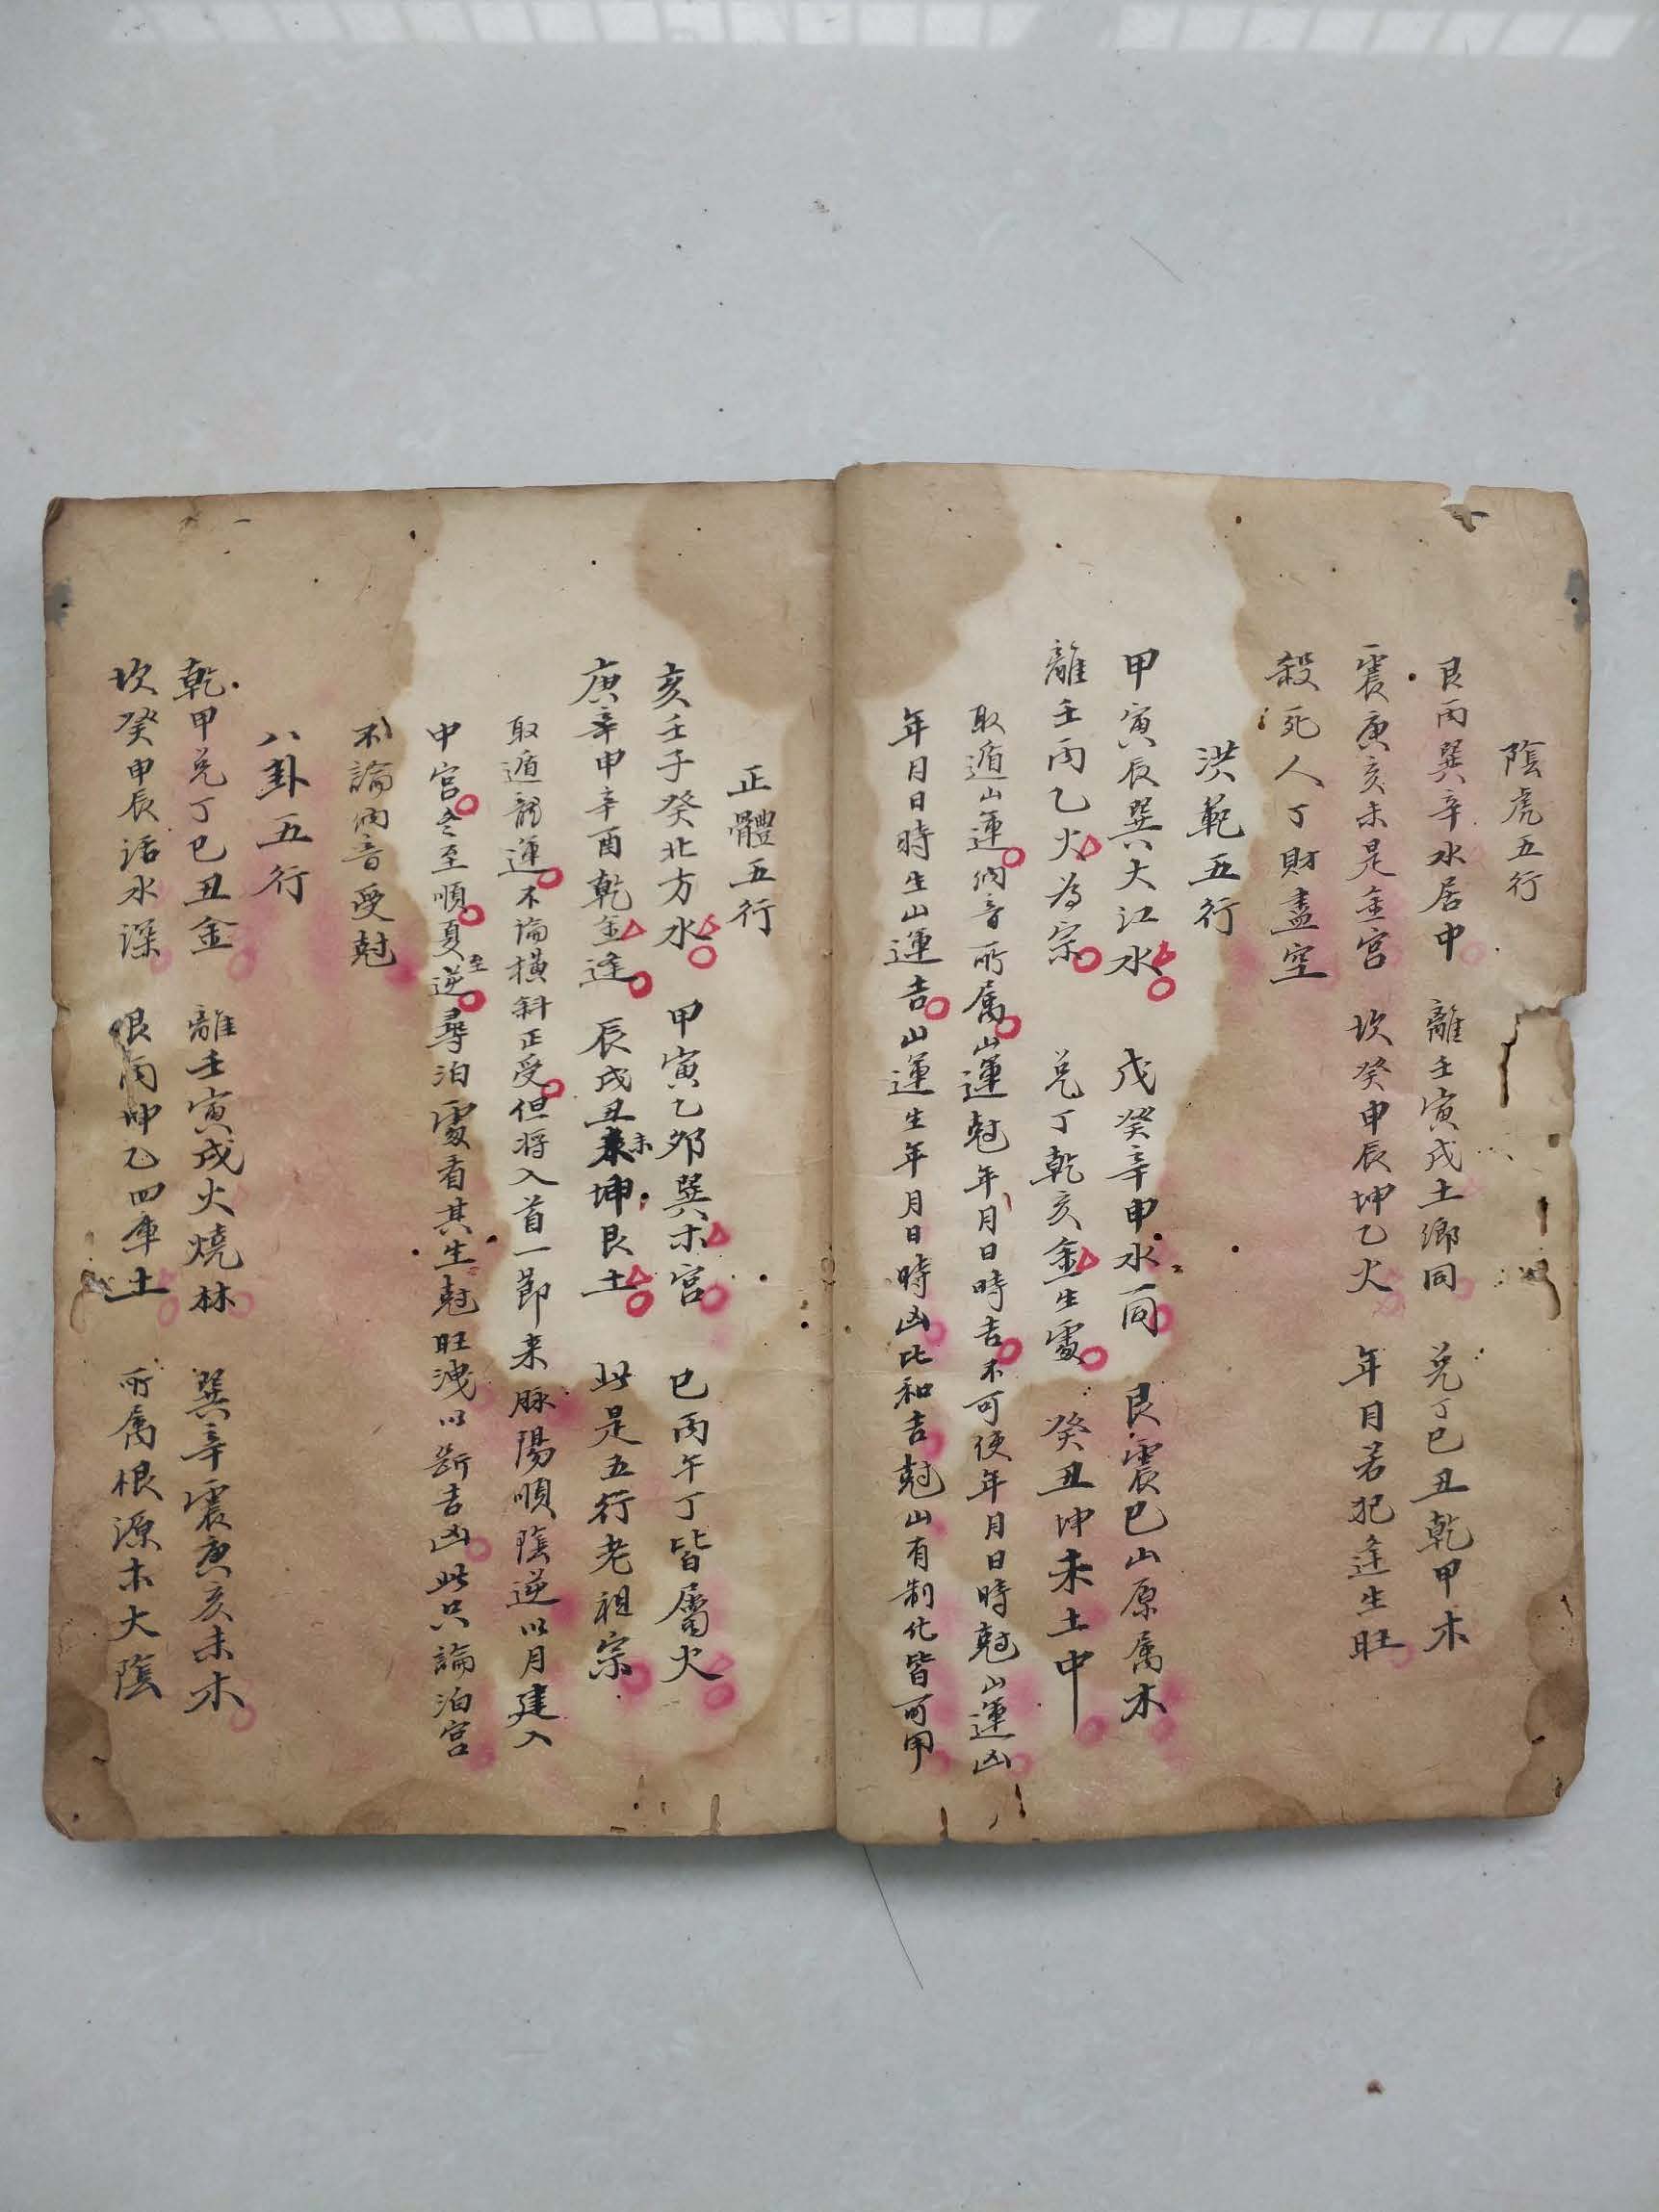 陰虎五行
艮丙巽辛水居中　離壬寅戌土鄉同　兑丁巳丑乾甲木
震庚亥未是金宮　坎癸申辰坤乙火　年月若犯逢生旺
殺死人丁財盡空
洪範五行
甲寅辰巽大江水　戌癸辛申水一同　艮震巳山原属木
離壬丙乙火為宗　兑丁乾亥金生處　癸丑坤未土中
取遁山運納音所属山運尅年月日時吉不可使年月日時尅山運凶
年月日時生山運吉山運生年月日時凶比和吉尅山有制化皆可用
正體五行
亥壬子癸北方水　甲寅乙夘巽木宮　巳丙午丁皆屬火
庚辛申辛酉乾金逢　辰戌丑未坤艮土　此是五行老祖宗
取遁龍運不論橫斜正受但将入首一節来脉陽順陰逆以月建入
中宮冬至順夏至逆尋泊處看其生尅旺洩以斷吉凶此只論泊宮
不論納音受尅
八卦五行
乾甲兑丁巳丑金　離壬寅戌火燒林　巽辛震庚亥未木
坎癸申辰活水深　艮丙坤乙四庫土　所属根源木大陰